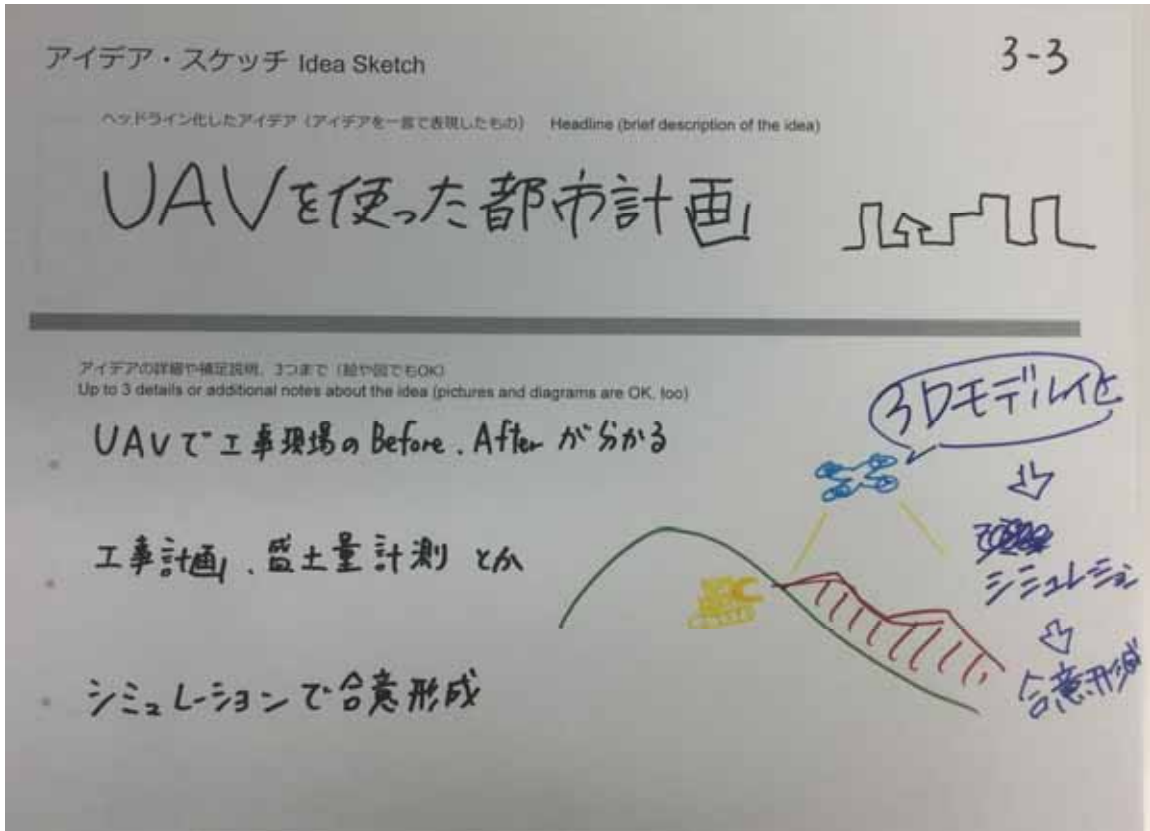 アイデア・スケッチ Idea Sketch
3-3
ヘッドライン化したアイデア（アイデアを一言で表現したもの） Headline (brief description of the idea)
UAVを使った都市計画
アイデアの詳細や補足説明、3つまで（絵や図でもOK）
Up to 3 details or additional notes about the idea (pictures and diagrams are OK, too)
UAVで工事現場のBefore.Afterが分かる
工事計画、盛土量計測とか
シミュレーションで合意形成
3Dモデル化
シミュレーション
合意形成